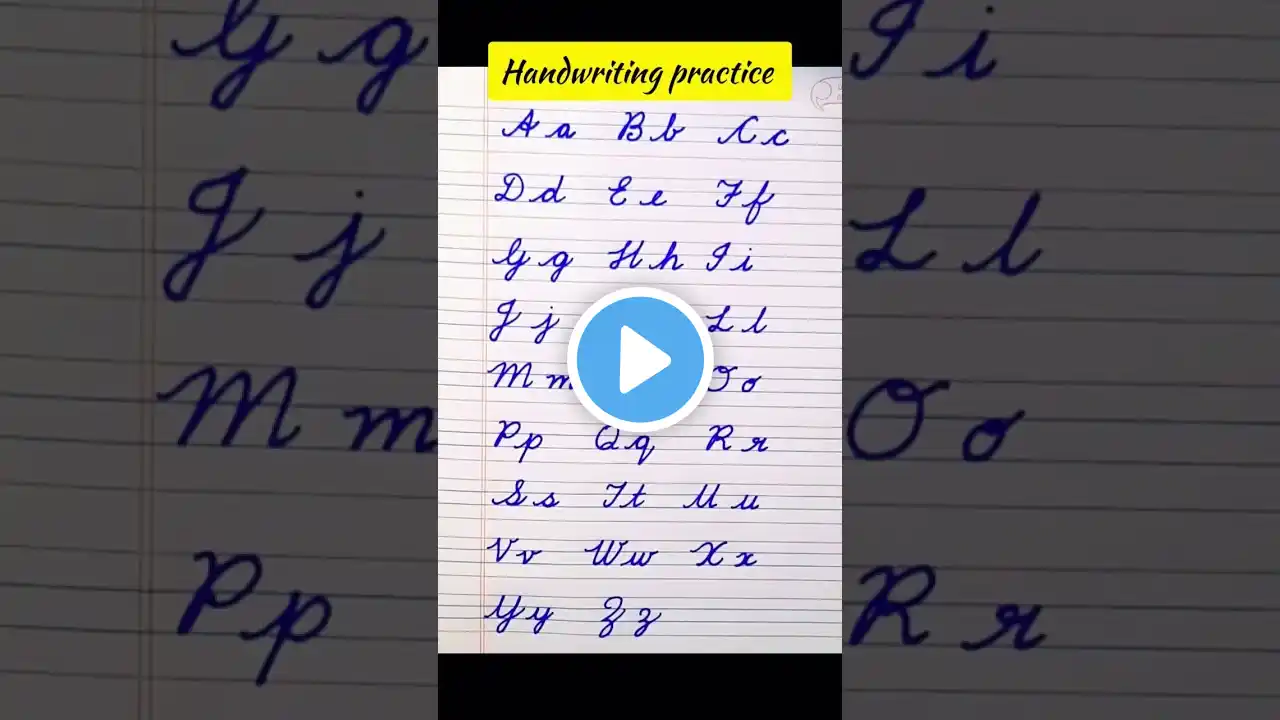 Handwriting practice
A a B b C c
D d E e F f
G g H h I i
J j L l
M m O o
P p Q q R r
S s T t U u
V v W w X x
Y y Z z
G g I i
J j L l
M m O o
P p R r